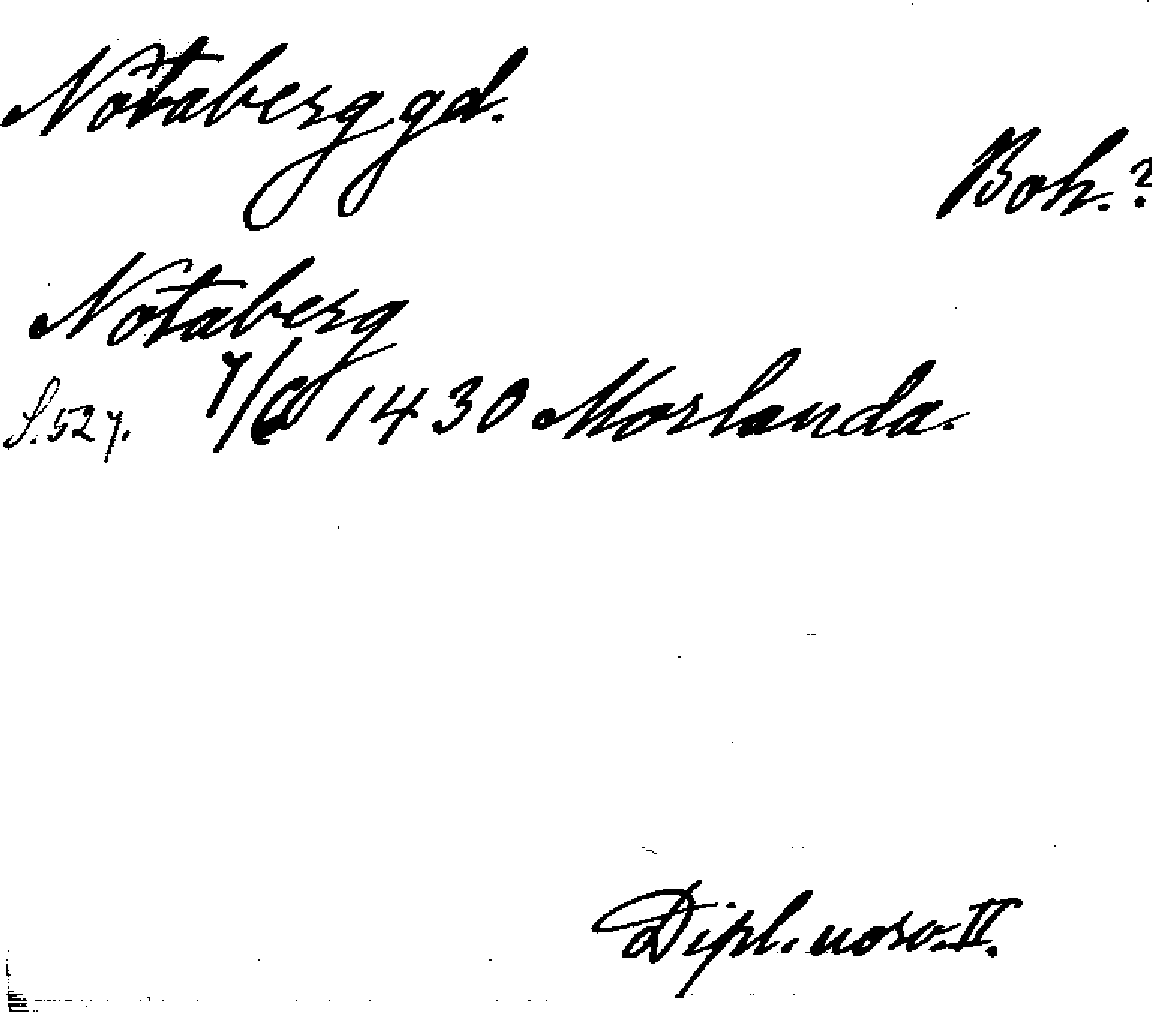 Nötaberg gd.
Boh.?
Notaberg
S. 527. 7/10 1430 Morlanda.
Dipl. norv. II.